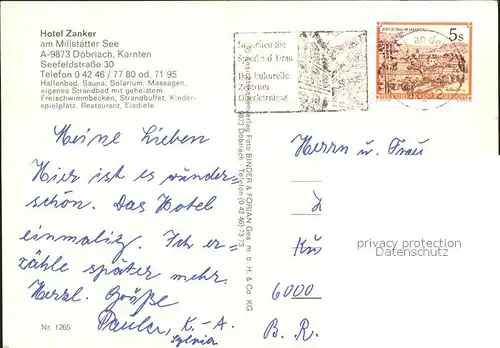 Hotel Zanker
am Millstätter See
A-9873 Döbriach, Kärnten
Seefeldstraße 30
Telefon 0 42 46 / 77 80 od. 71 95
Hallenbad, Sauna, Solarium, Massagen,
eigenes Strandbad mit geheiztem
Freischwimmbecken, Strandbuffet, Kinder-
spielplatz, Restaurant, Eisdiele
Meine Lieben
Hier ist es wunder-
schön. Das Hotel
einmalig. Ich er-
zähle später mehr.
Herzl. Grüße
K.-A.
Sylvia
Nr. 1265
Foto BINDER & FORJAN Ges. m. b. H. & Co. KG
9873 Döbriach - Telefon (0 42 46) 73 73
Spittal a. d. Drau
Das kulturelle
Zentrum
Oberkärntens
5s
an der
Herrn u. Frau
6000
B. R.
privacy protection
Datenschutz